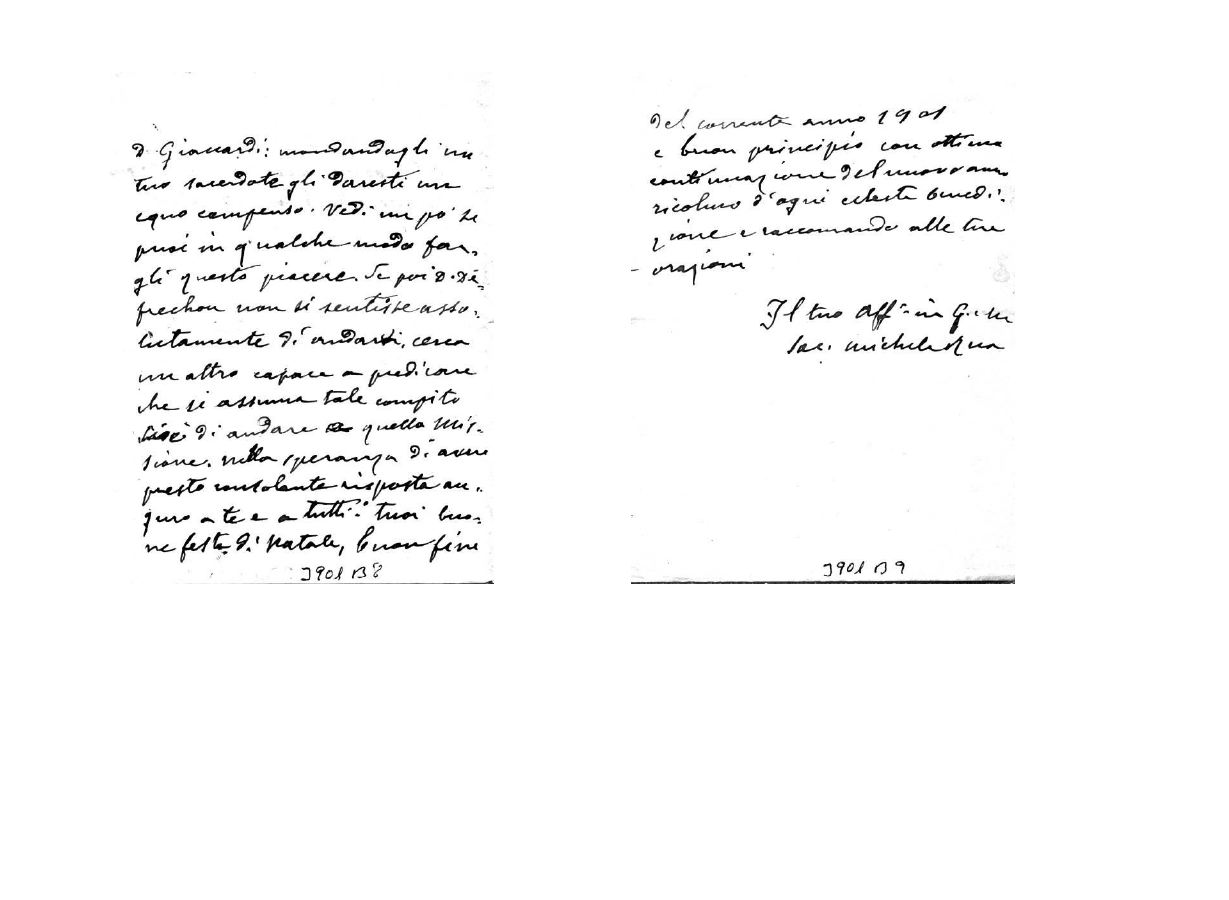 D. Giaccardi: mandandogli un
tuo sacerdote gli daresti un
equo compenso. Vedi un po' se
puoi in qualche modo far-
gli questo piacere. Se poi D. De-
frechou non si sentisse asso-
lutamente di andarvi, cerca
un altro capace a predicare
che si assuma tale compito
di andare quella Mis-
sione. Nella speranza di avere
presto consolante risposta au-
guro a te e a tutti i tuoi buo-
ne feste di Natale, buon fine
1901 B 8
del corrente anno 1901
e buon principio con ottima
continuazione del nuovo anno
ricolmo d'ogni celeste benedi-
zione e raccomando alle tue
orazioni
Il tuo Aff. in G. e M.
Sac. Michele Rua
1901 B 9